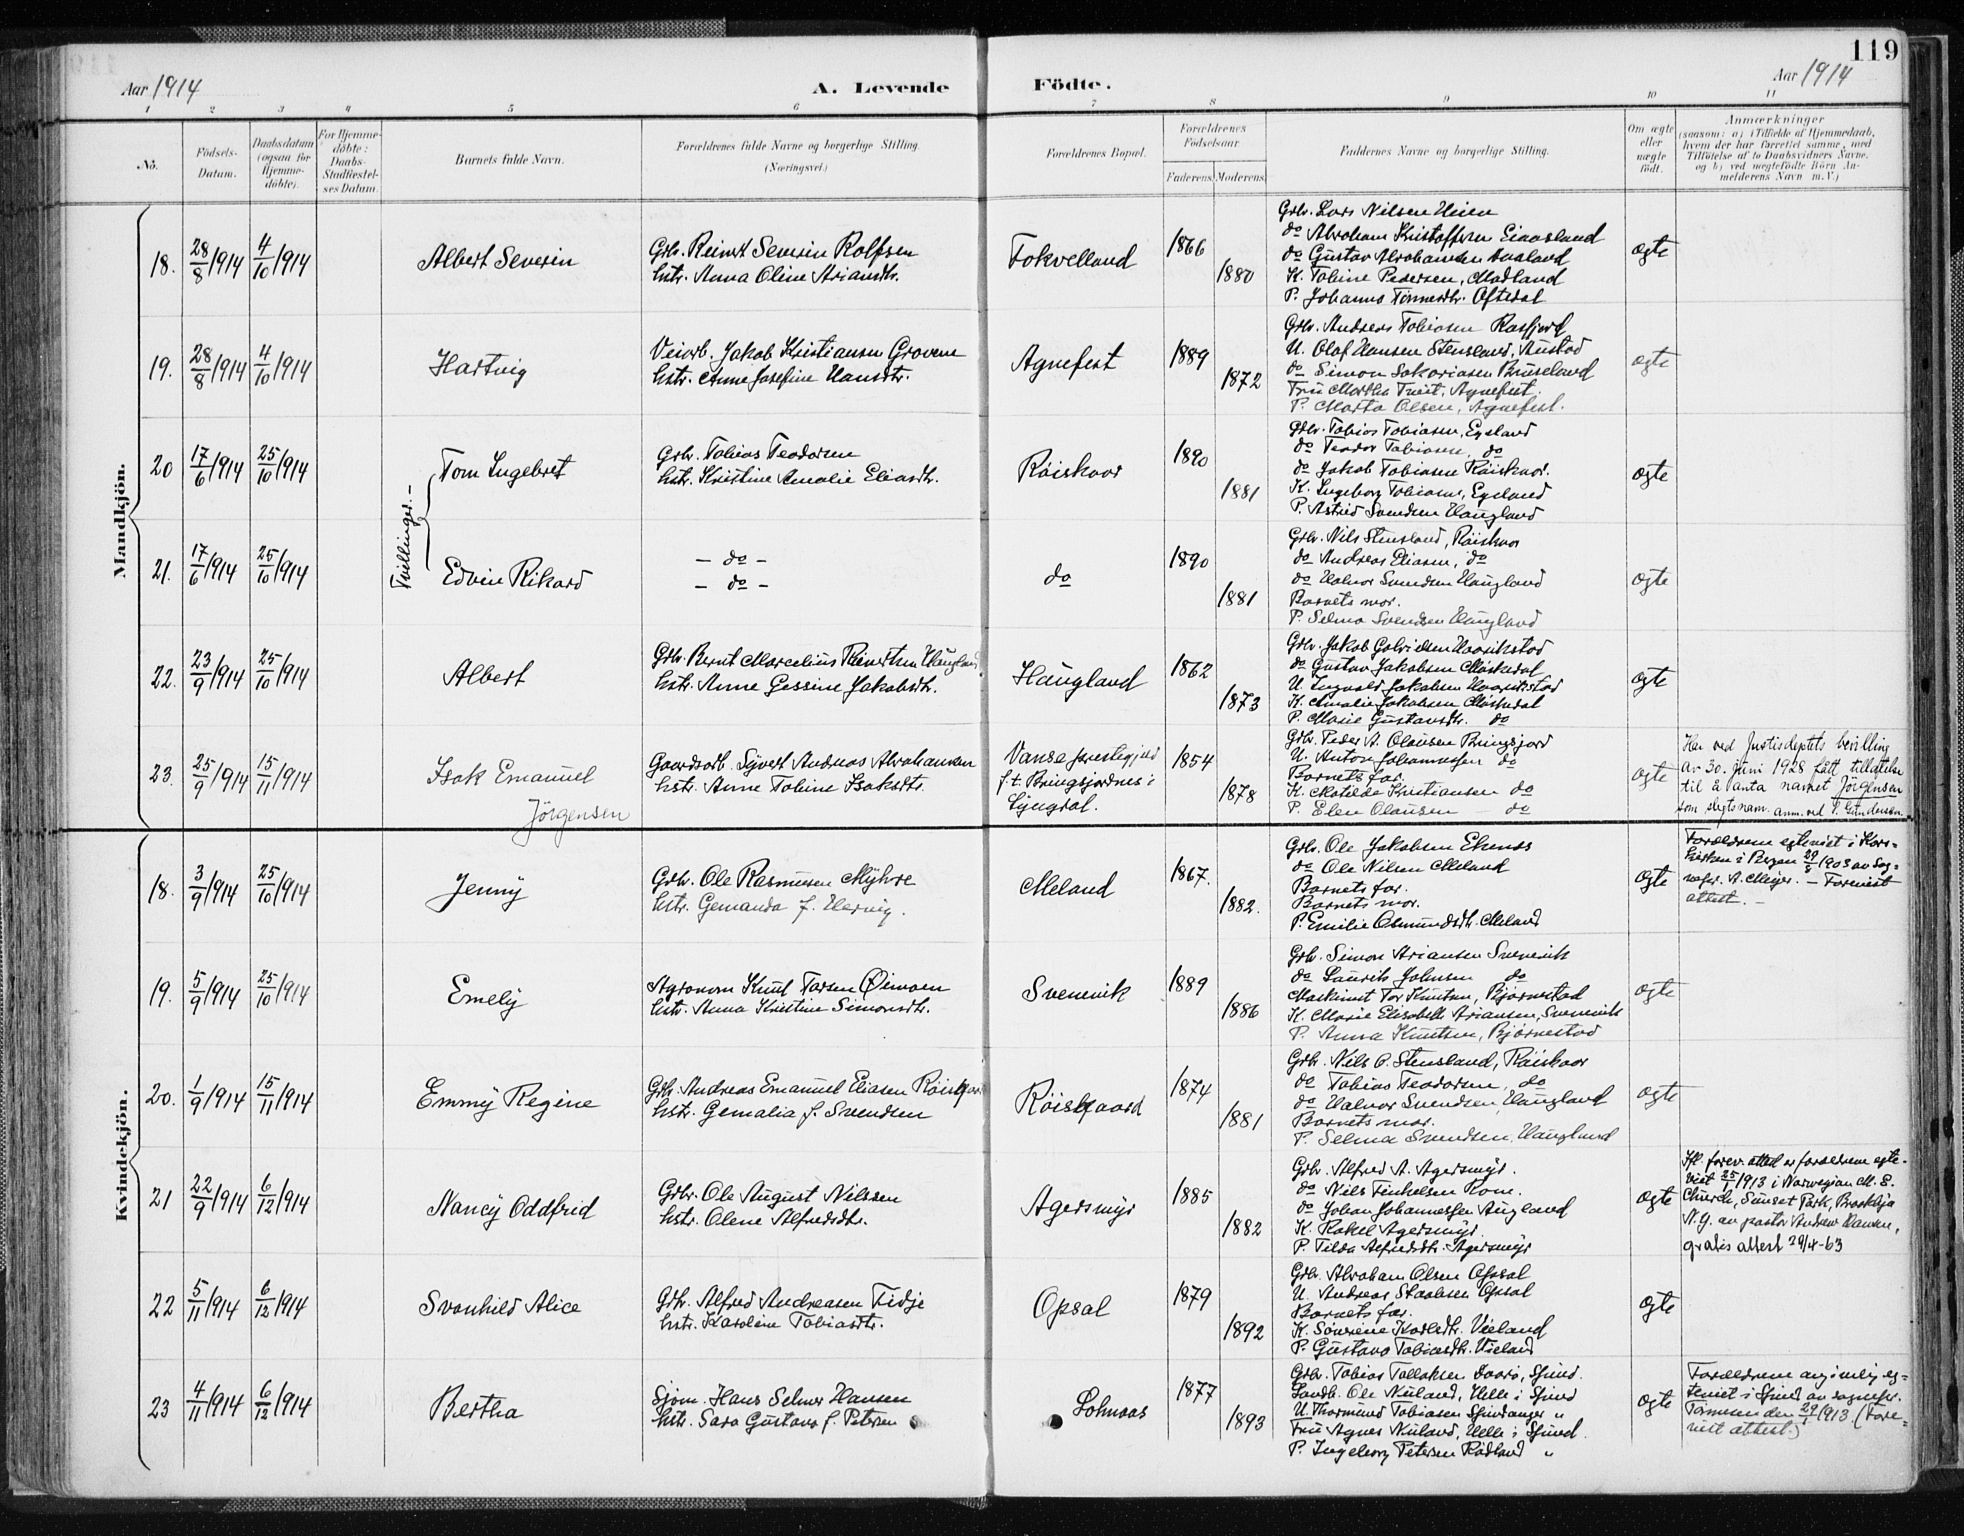 119
Aar 1914
A. Levende Födte.
Aar 1914
1 2 3 4 5 6 7 8 9 10 11
No.
Födsels-Datum.
Daabsdatum (ogsaa for Hjemme-döbte).
For Hjemme-döbte: Daabs-Stadfæstel-ses Datum.
Barnets fulde Navn.
Forældrenes fulde Navne og borgerlige Stilling. (Næringsvei.)
Forældrenes Bopæl.
Forældrenes Födselsaar.
Faderens. Moderens.
Faddernes Navne og borgerlige Stilling.
Om ægte eller uægte födt.
Anmærkninger
(saasom: a) i Tilfælde af Hjemmedaab, hvem der har forrettet samme, med Tilföielse af to Daabsvidners Navne, og b) ved uægtefödte Börn An-melderens Navn m. V.)
Mandkjön.
18. 28/8 1914 4/10 1914 Albert Severin
Grbr. Reinert Severin Rolfsen
hstr. Anna Oline Ariansdtr.
Fokvelland 1866 1880
Grbr. Lars Nilsen
do Abraham Kristoffersen
do Gustav Abrahamsen
K. Tobine Pedersen, Madland
P. Johanna Tönnesdtr. Oftedal
ægte
19. 28/8 1914 4/10 1914 Hartvig
Veiarb. Jakob Kristiansen Grovene
hstr. Anne Josefine Hansdtr.
Agnefest 1889 1872
Grbr. Andreas Tobiasen Rosfjord
U. Olaf Hansen Stensland, Austad
do Simon Sakariasen Bruseland
Fru Martha Tveit, Agnefest.
P. Marta Olsen, Agnefest.
ægte
Tvillinger.
20 17/6 1914 25/10 1914 Tom Ingebret
Grbr. Tobias Teodorsen
hstr. Kristine Amalie Eliasdtr.
Röiskaar 1890 1881
Grbr. Tobias Tobiasen, Egeland
do Teodor Tobiasen, do
do Jakob Tobiasen Röiskaar.
K. Ingeborg Tobiasen, Egeland
P. Astrid Svendsen Haugland
ægte
21. 17/6 1914 25/10 1914 Edvin Rikard
- do -
- do -
do 1890 1881
Grbr. Nils Stensland, Röiskaar
do Andreas Eliasen, do
do Halvor Svendsen Haugland
Barnets mor.
P. Selma Svendsen Haugland
ægte
22. 23/9 1914 25/10 1914 Albert
Grbr. Bernt Marcelius Reinertsen Haugland
hstr. Anne Gessine Jakobsdtr.
Haugland 1862 1873
Grbr. Jakob Gabrielsen Haarikstad
do Gustav Jakobsen Möskedal
U. Ingvald Jakobsen Haarikstad
K. Amalie Jakobsen Möskedal
P. Marie Gustavsdtr. do
ægte
23. 25/9 1914 15/11 1914 Isak Emanuel
Jörgensen
Gaardsarb. Sÿvert Andreas Abrahamsen
hstr. Anne Tobine Isaksdtr.
Vanse prestegjeld
f.t. Bringsjordnes i
Lyngdal.
1854 1878
Grbr. Peder A. Olausen Bringsjord
U. Anton Johannessen do
Barnets far.
K. Matilde Kristiansen do
P. Elen Olausen - do
ægte
Har ved Justisdeptets bevilling
av 30. juni 1928 fått tillatelse
til å anta navnet Jörgensen
som slegtsnavn. anm. ved S. Gundersen.
Kvindekjön.
18. 3/9 1914 25/10 1914 Jenny
Grbr. Ole Rasmusen Myhre
hstr. Gemanda f. Hervig.
Meland 1867. 1882.
Grbr. Ole Jakobsen Ekenes
do Ole Nilsen Meland
Barnets far.
Barnets mor.
P. Emilie Osmundsdtr. Meland
ægte
Forældrene egteviet i Kors-
kirken i Bergen 29/8 1903 av Sog-
nepr. A. Meyer. - Forevist
attest. -
19. 5/9 1914 25/10 1914 Emely
Agronom Knut Tarsen Öimoen
hstr. Anna Kristine Simonsdtr.
Svenevik 1889 1886
Grbr. Simon Ariansen Svenevik
do Laurits Johnsen do
Maskinist Tor Knutsen, Bjørnestad
K. Marie Elisabeth Ariansen, Svenevik
P. Anna Knutsen, Bjørnestad
ægte
20. 1/9 1914 15/11 1914 Emmy Regine
Grbr. Andreas Emanuel Eliasen Röiskaar
hstr. Gemalia f. Svendsen
Röiskaard 1874 1881
Grbr. Nils O. Stensland, Röiskaar
do Tobias Teodorsen, do
do Halvor Svendsen, Haugland
Barnets mor.
P. Selma Svendsen, Haugland
ægte
21 22/9 1914 6/12 1914 Nancy Oddfrid
Grbr. Ole August Nilssen
hstr. Olene Alfredsdtr.
Agersmyr 1885 1882
Grbr. Alfred A. Agersmyr.
do Nils Tinkelsen Rom.
do Johan Johannessen Augland
K. Rakel Agersmyr.
P. Tilda Alfredsdtr. Agersmyr
ægte
Ifl. forev. attest er forældrene egte-
viet 25/1 1913 i Norwegian M. E.
Church, Sunset Park, Brooklyn
N.Y. av pastor Andrew Hansen,
gratis attest 29/4-63
22 5/11 1914 6/12 1914 Svanhild Alice
Grbr. Alfred Andreasen Fidje
hstr. Karoline Tobiasdtr.
Opsal 1879 1892
Grbr. Abraham Olsen Opsal
U. Andreas Staalesen Opsal
Barnets far.
K. Sörine Karlsdtr. Vieland
P. Gustava Tobiasdtr. Vieland
ægte
23 4/11 1914 6/12 1914 Bertha
Sjöm. Hans Selmer Hansen
hstr. Sara Gustava f. Petersen
Lohnaas 1877 1893
Grbr. Tobias Tollaksen Spind.
Landh. Ole Nuland, Helle i Spind
U. Thormund Tobiasen Spindsanger "
Fru Agnes Nuland, Helle i Spind.
P. Ingeborg Petersen Rødland "
ægte
Forældrene angivelig eg-
teviet i Spind av sognepr.
Tönnesen den 29/ 1913. (Fore-
vist attest.)